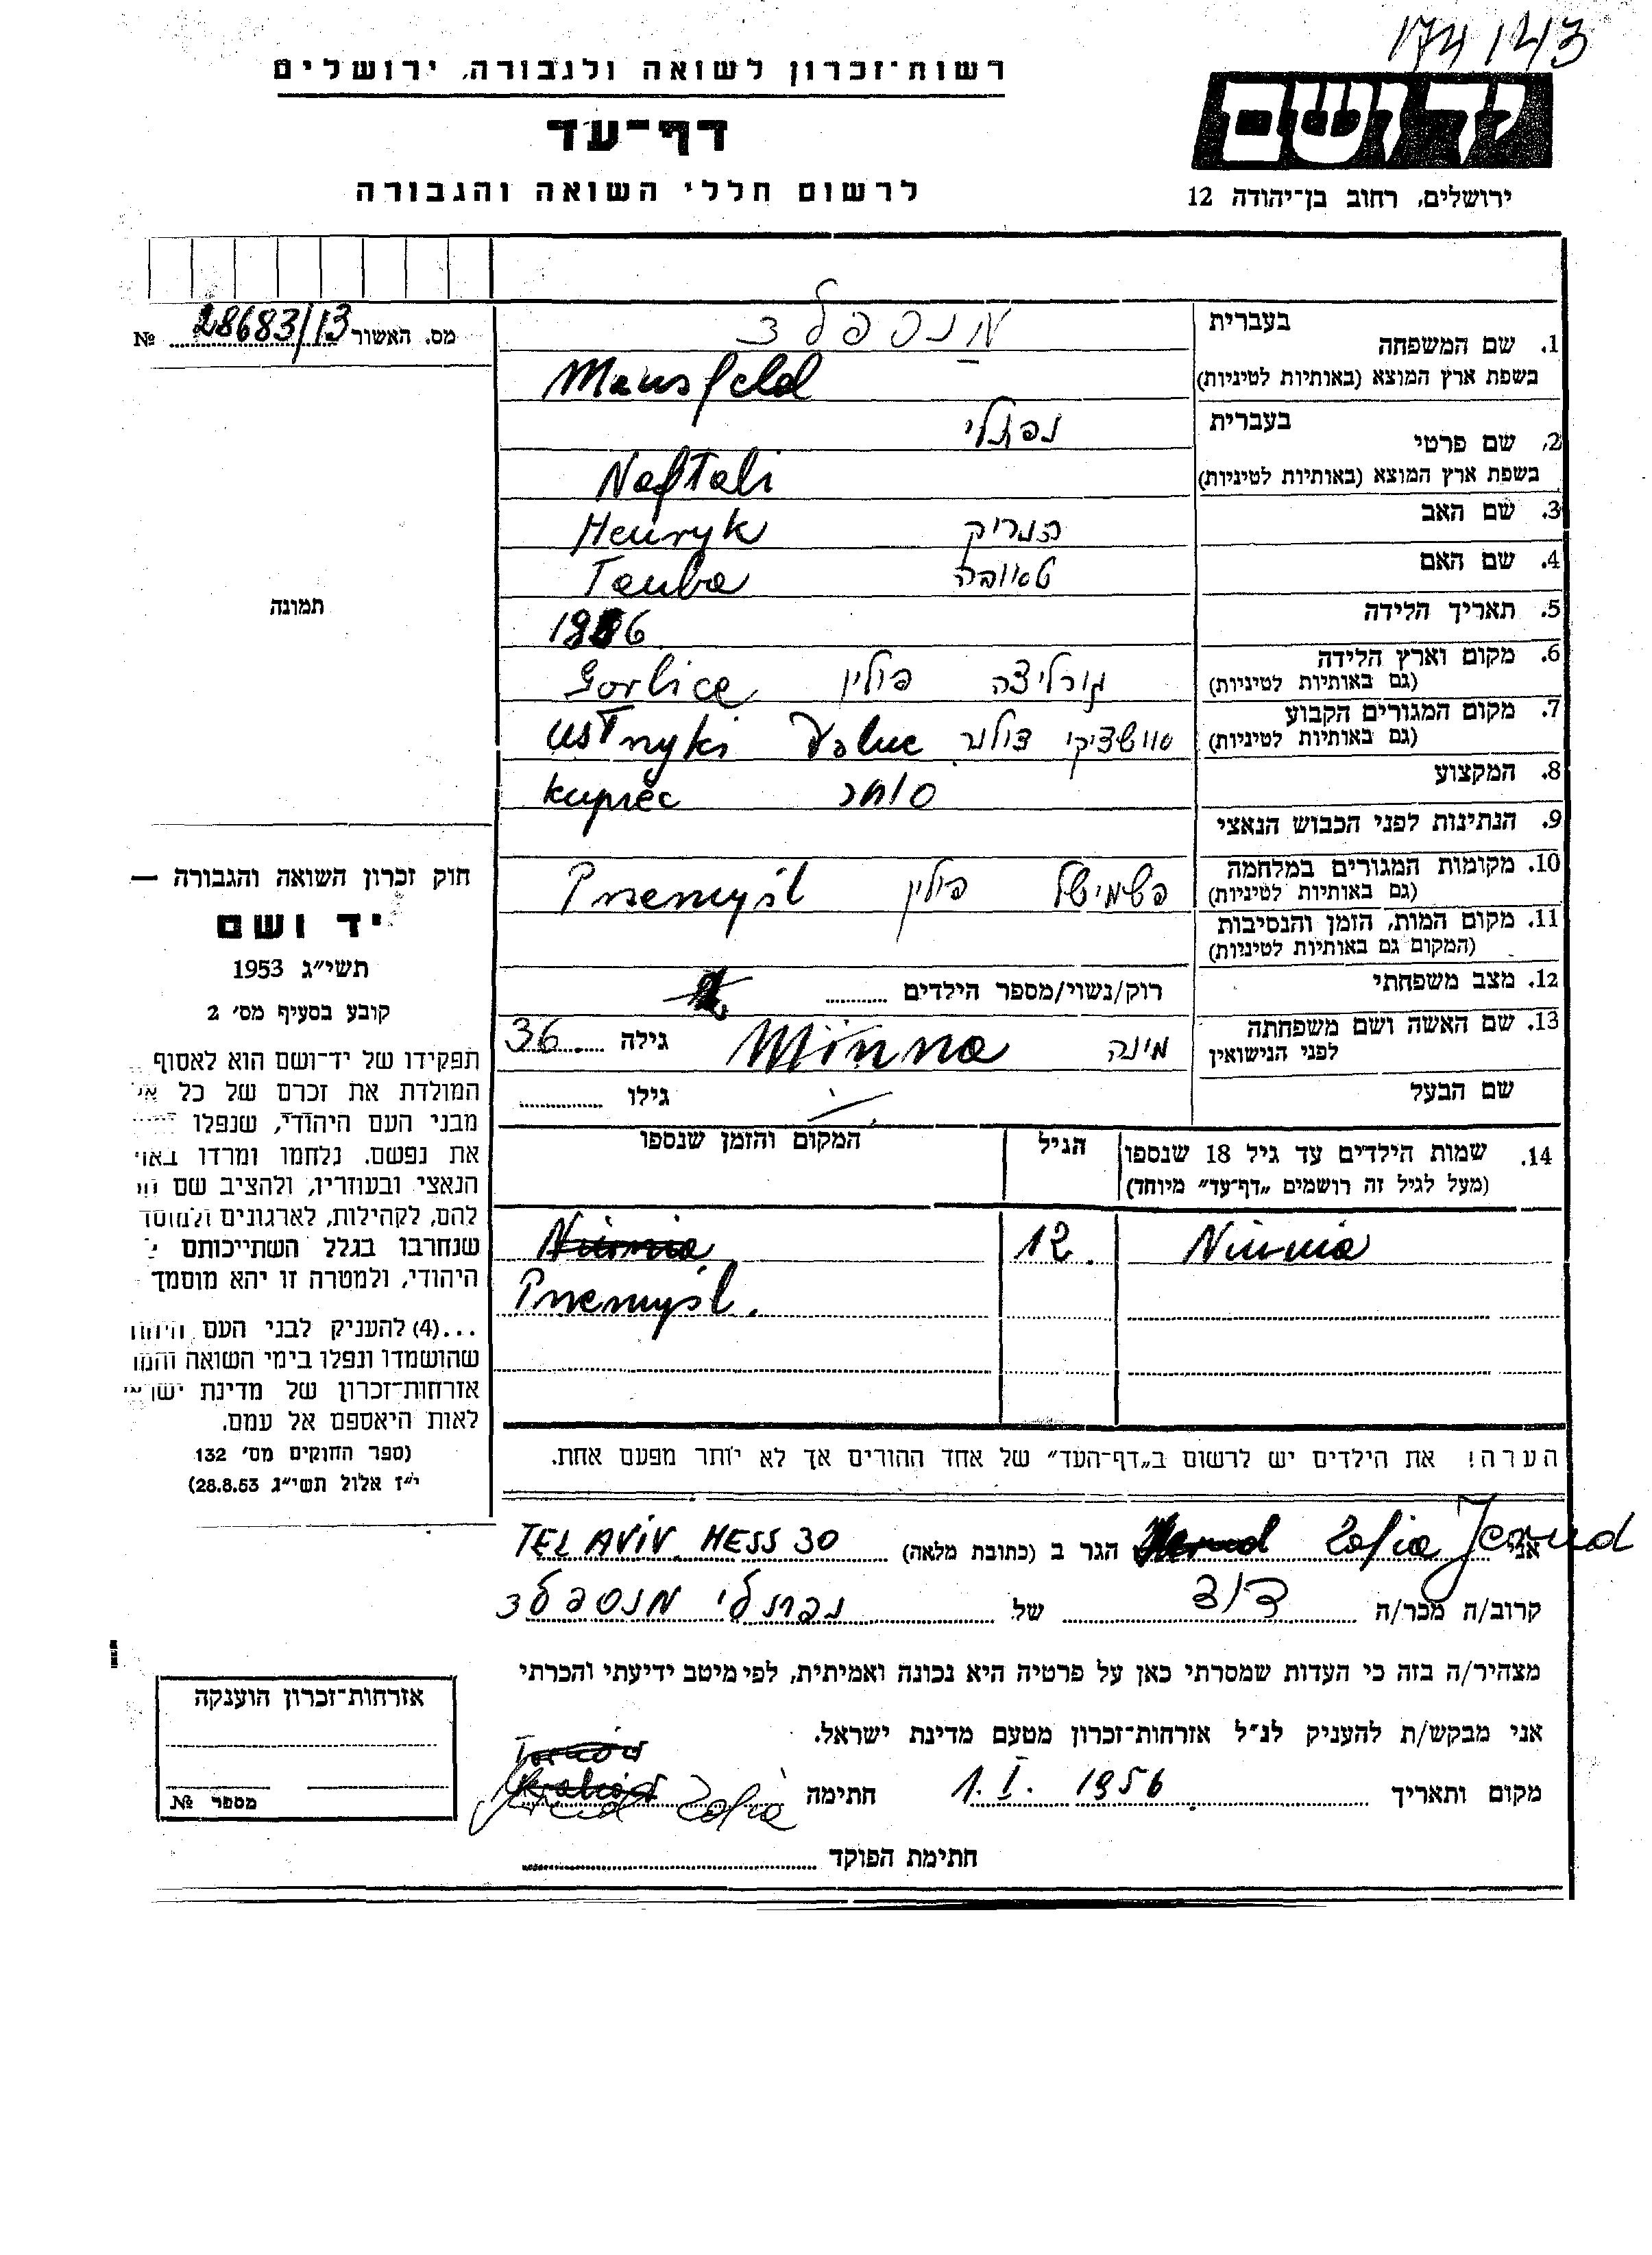 174/143
רשות־זכרון לשואה ולגבורה, ירושלים
דף־עד
לרשום חללי השואה והגבורה
יד ושם
ירושלים, רחוב בן־יהודה 12
מס. האשור 28683/13 №
1. שם המשפחה
בעברית מנספלד
בשפת ארץ המוצא (באותיות לטיניות) Mansfeld
2. שם פרטי
בעברית נפתלי
בשפת ארץ המוצא (באותיות לטיניות) Naftali
3. שם האב הנריק Henryk
4. שם האם טאובה Tauba
5. תאריך הלידה
6. מקום וארץ הלידה גורליצה פולין Gorlice
(גם באותיות לטיניות)
7. מקום המגורים הקבוע Ustrzyki Dolne
(גם באותיות לטיניות)
8. המקצוע סוחר kupiec
9. הנתינות לפני הכבוש הנאצי
10. מקומות המגורים במלחמה פשמישל פולין Przemyśl
(גם באותיות לטיניות)
11. מקום המות, הזמן והנסיבות
(המקום גם באותיות לטיניות)
12. מצב משפחתי רוק/נשוי/מספר הילדים
13. שם האשה ושם משפחתה
לפני הנישואין מינה Minna גילה 36
שם הבעל גילו
14. שמות הילדים עד גיל 18 שנספו
(מעל לגיל זה רושמים "דף־עד" מיוחד)
הגיל
המקום והזמן שנספו
Niunia 12
Przemyśl.
הערה! את הילדים יש לרשום ב"דף־העד" של אחד ההורים אך לא יותר מפעם אחת.
אני Zofia הגר ב (כתובת מלאה) TEL AVIV. HESS 30
קרוב/ה מכר/ה דוד של נפתלי מנספלד
מצהיר/ה בזה כי העדות שמסרתי כאן על פרטיה היא נכונה ואמיתית, לפי מיטב ידיעתי והכרתי
אני מבקש/ת להעניק לנ"ל אזרחות־זכרון מטעם מדינת ישראל.
מקום ותאריך 1. I. 1956 חתימה Zofia
חתימת הפוקד
תמונה
חוק זכרון השואה והגבורה —
יד ושם
תשי"ג 1953
קובע בסעיף מס' 2
תפקידו של יד־ושם הוא לאסוף
המולדת את זכרם של כל
מבני העם היהודי, שנפלו
את נפשם. נלחמו ומרדו
הנאצי ובעוזריו, ולהציב שם
להם, לקהילות, לארגונים ולמוסד
שנחרבו בגלל השתייכותם
היהודי, ולמטרה זו יהא מוסמך
...(4) להעניק לבני העם
שהושמדו ונפלו בימי השואה
אזרחות־זכרון של מדינת
לאות היאספם אל עמם.
(ספר החוקים מס' 132
י"ז אלול תשי"ג 28.8.53)
אזרחות־זכרון הוענקה
מספר №